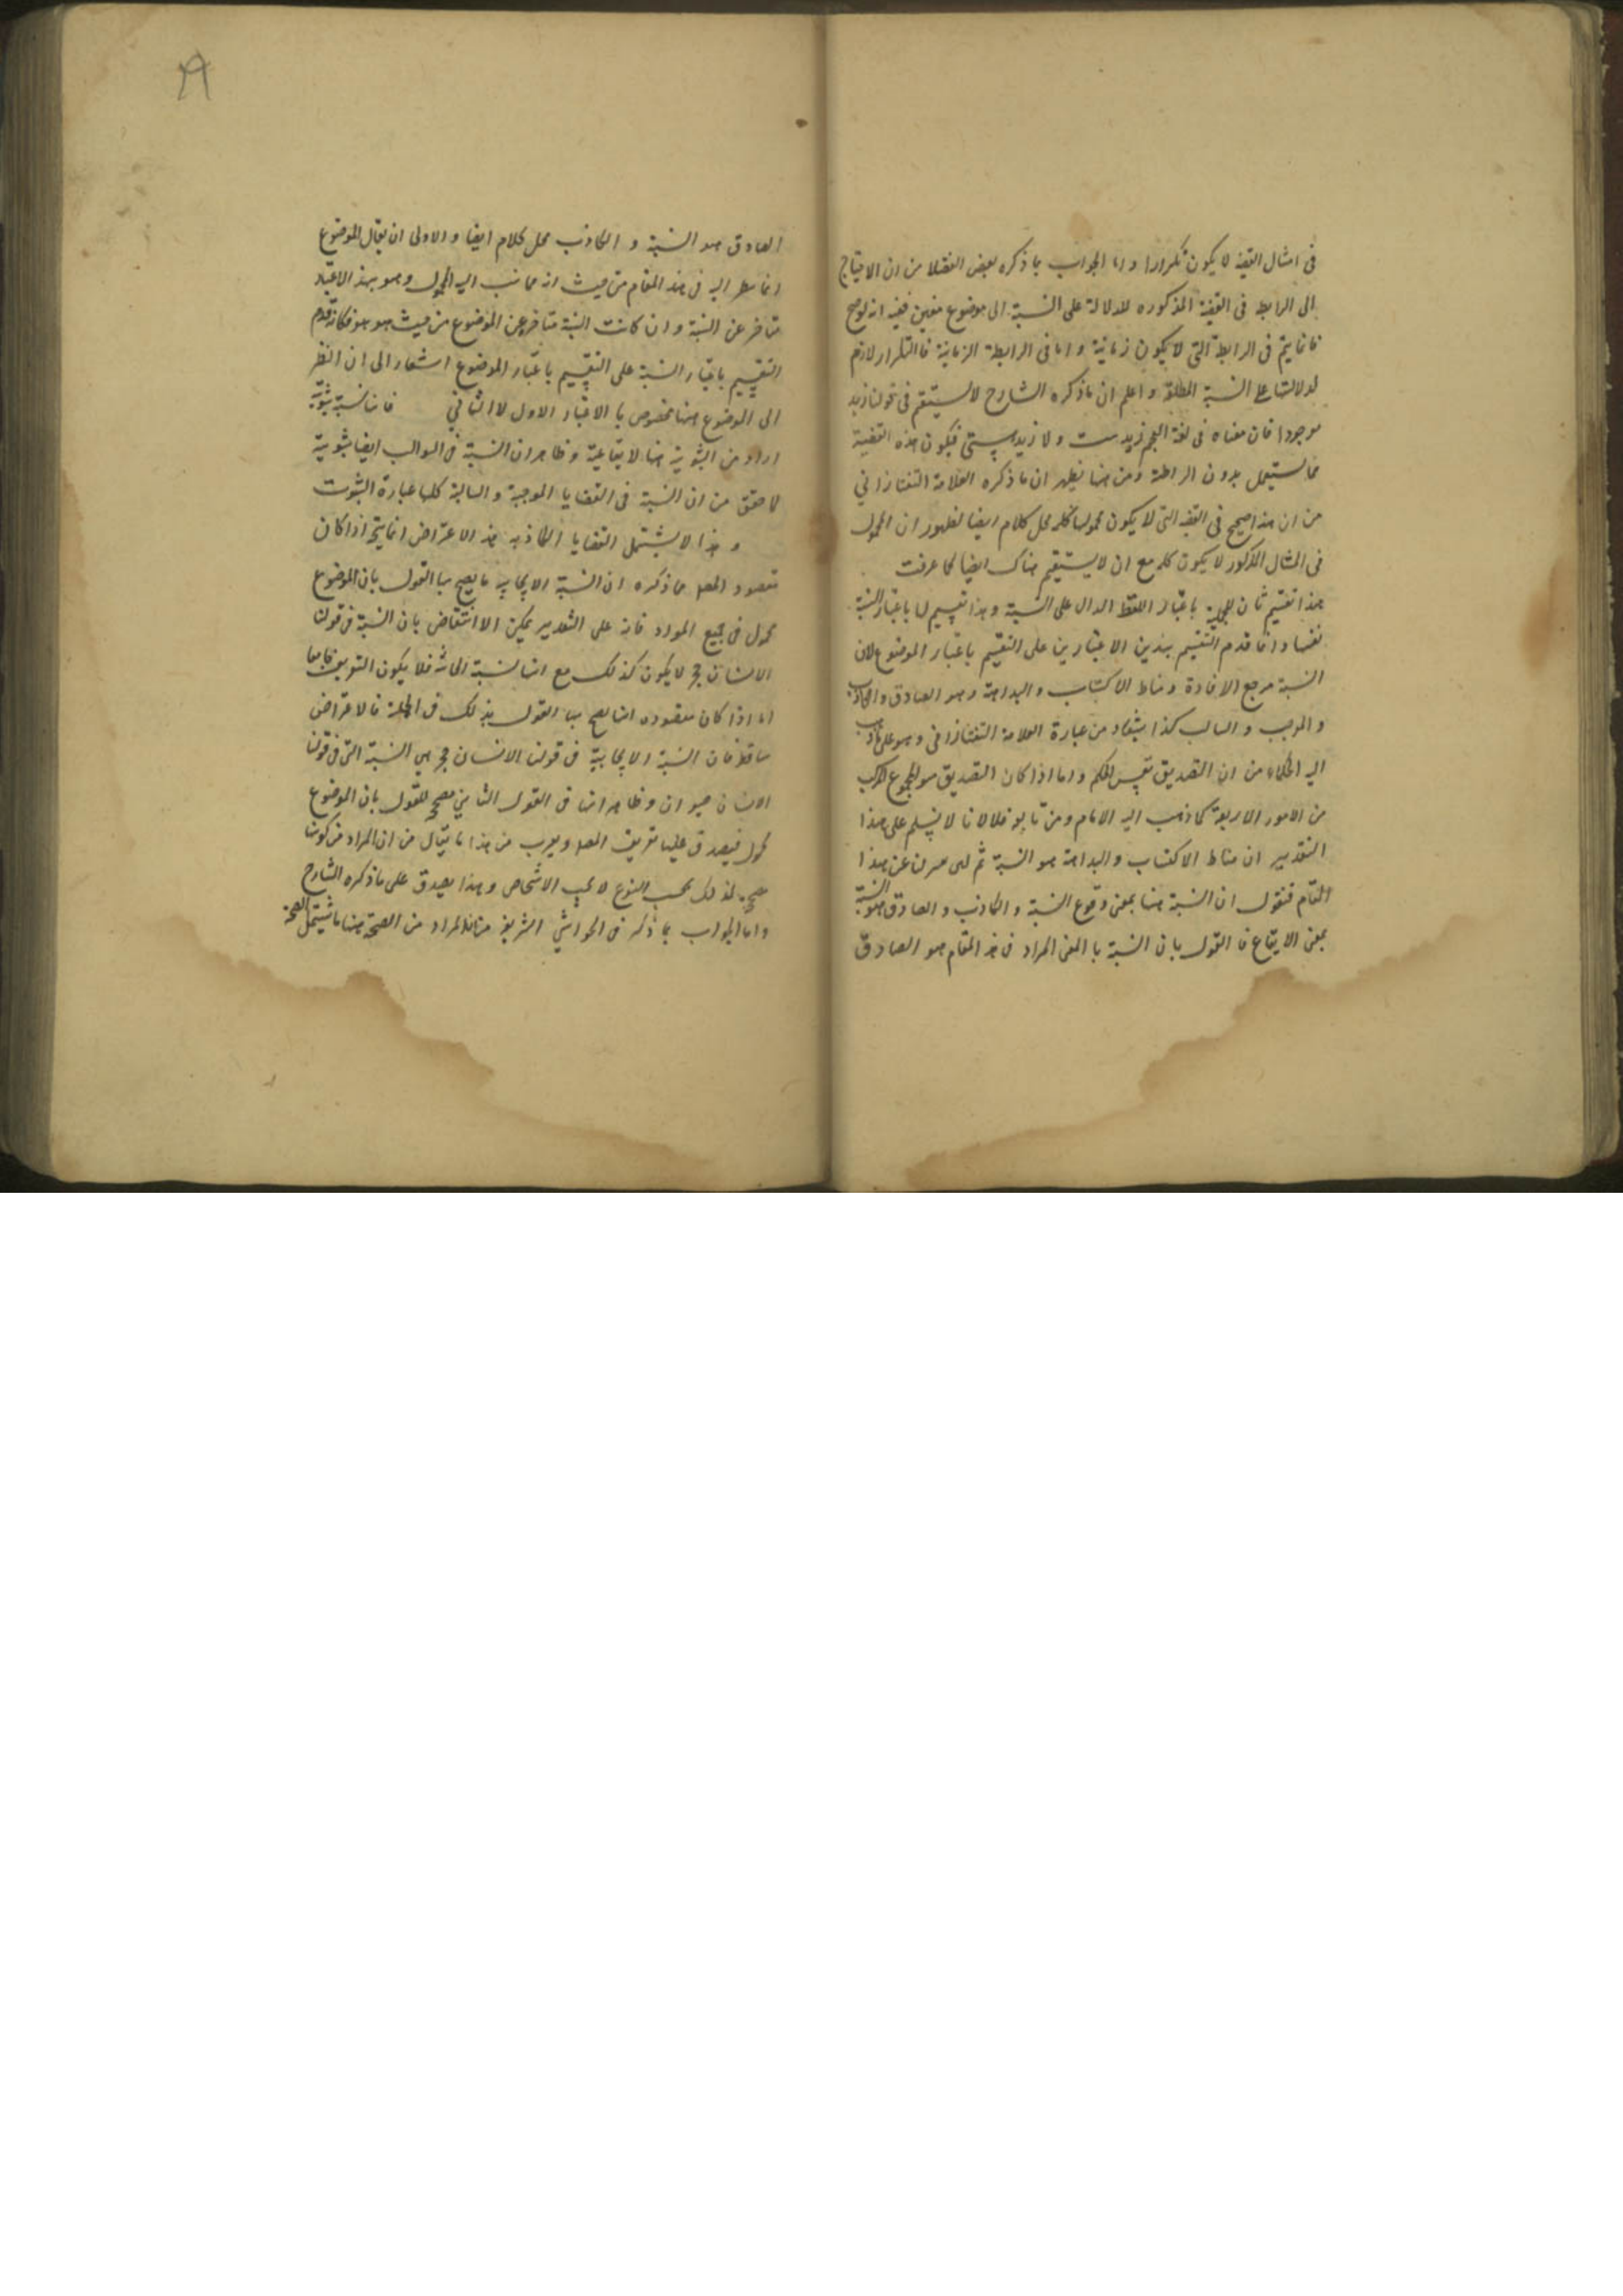 فى امثال القضية لا يكون تكرارا واما الجواب بما ذكره بعض الفضلا من ان الاحتياج
الى الرابط فى القضية المذكوره للدلالة على النسبة الى موضوع معين ففيه انه لوصح
فانما يتم فى الرابطة التى لا يكون زمانية واما فى الرابطة الزمانية فالتكرار لازم
لدلالتها على النسبة المطلقة واعلم ان ما ذكره الشارح لا يستقيم فى قولنا زيد
موجودا فان معناه فى لغة العجم زيد هست ولا زيد هستى فيكون هذه القضية
مما يستعمل بدون الرابطة ومن هنا يظهر ان ما ذكره العلامة التفتازانى
من ان هذا صحيح فى القضية التى لا يكون محمولها كلمه محل كلام ايضا لظهور ان المحمول
فى المثال المذكور لا يكون كلمه مع ان لا يستقيم هناك ايضا لما عرفت
هذا تقسيم ثان للحملية باعتبار اللفظ الدال على النسبة وهذا تقسيم لها باعتبار النسبة
نفسها وانما قدم التقسيم بهذين الاعتبارين على التقسيم باعتبار الموضوع لان
النسبة مرجع الافادة ومناط الاكتساب والبداهة وهو الصادق والكاذب
والموجب والسالب كذا يستفاد من عبارة العلامة التفتازانى وهو على ما ذهب
اليه الحكماء من ان التصديق نفس الحكم واما اذا كان التصديق هو المجموع المركب
من الامور الاربعة كما ذهب اليه الامام ومن تابعه فلا لانا لا نسلم على هذا
التقدير ان مناط الاكتساب والبداهة هو النسبة ثم لو عن هذا
المقام فنقول ان النسبة هنا بمعنى وقوع النسبة والكاذب والصادق هو النسبة
بمعنى الايقاع فالقول بان النسبة بالمعنى المراد فى هذا المقام هو الصادق
الصادق هو النسبة والكاذب محل كلام ايضا والاولى ان يقال الموضوع
انما ينظر اليه فى هذا المقام من حيث انه مما نسب اليه المحمول وهو بهذا الاعتبار
متاخر عن النسبة وان كانت النسبة متاخرة عن الموضوع من حيث هو هو فكانه قدم
التقسيم باعتبار النسبة على التقسيم باعتبار الموضوع اشعار الى ان النظر
الى الموضوع هنا مخصوص بالاعتبار الاول لا الثانى فانها نسبة ثبوتية
اراد من الثبوتية هنا الايقاعية وظاهر ان النسبة فى السوالب ايضا ثبوتية
لما حقق من ان النسبة فى القضايا الموجبة والسالبة كلها عبارة الثبوت
وهذا لا يشتمل القضايا الكاذبه هذا الاعتراض انما يتجه اذا كان
مقصود المصه مما ذكره ان النسبة الايجابيه ما يصح بها القول بان الموضوع
محمول فى جميع المواد فانه على التقدير يمكن الانتقاض بان النسبة فى قولنا
الانسان حجر لا يكون كذلك مع انها نسبة فلا يكون التعريف جامعا
اما اذا كان مقصوده انها يصح بها القول بذلك فى الجملة فالاعتراض
ساقط فان النسبة الايجابية فى قولنا الانسان حجر هى النسبة التى فى قولنا
الانسان حيوان وظاهر انها فى القول الثانى مصحح للقول بان الموضوع
محمول فيصدق عليها تعريف المصه ويقرب من هذا ما يقال من ان المراد من كونها
مصححة لذلك بحسب النوع لا بحسب الاشخاص وهذا يصدق على ما ذكره الشارح
واما الجواب بما ذكر فى الحواشى الشريفية من ان المراد من الصحة هنا ما يشتمل الصحة